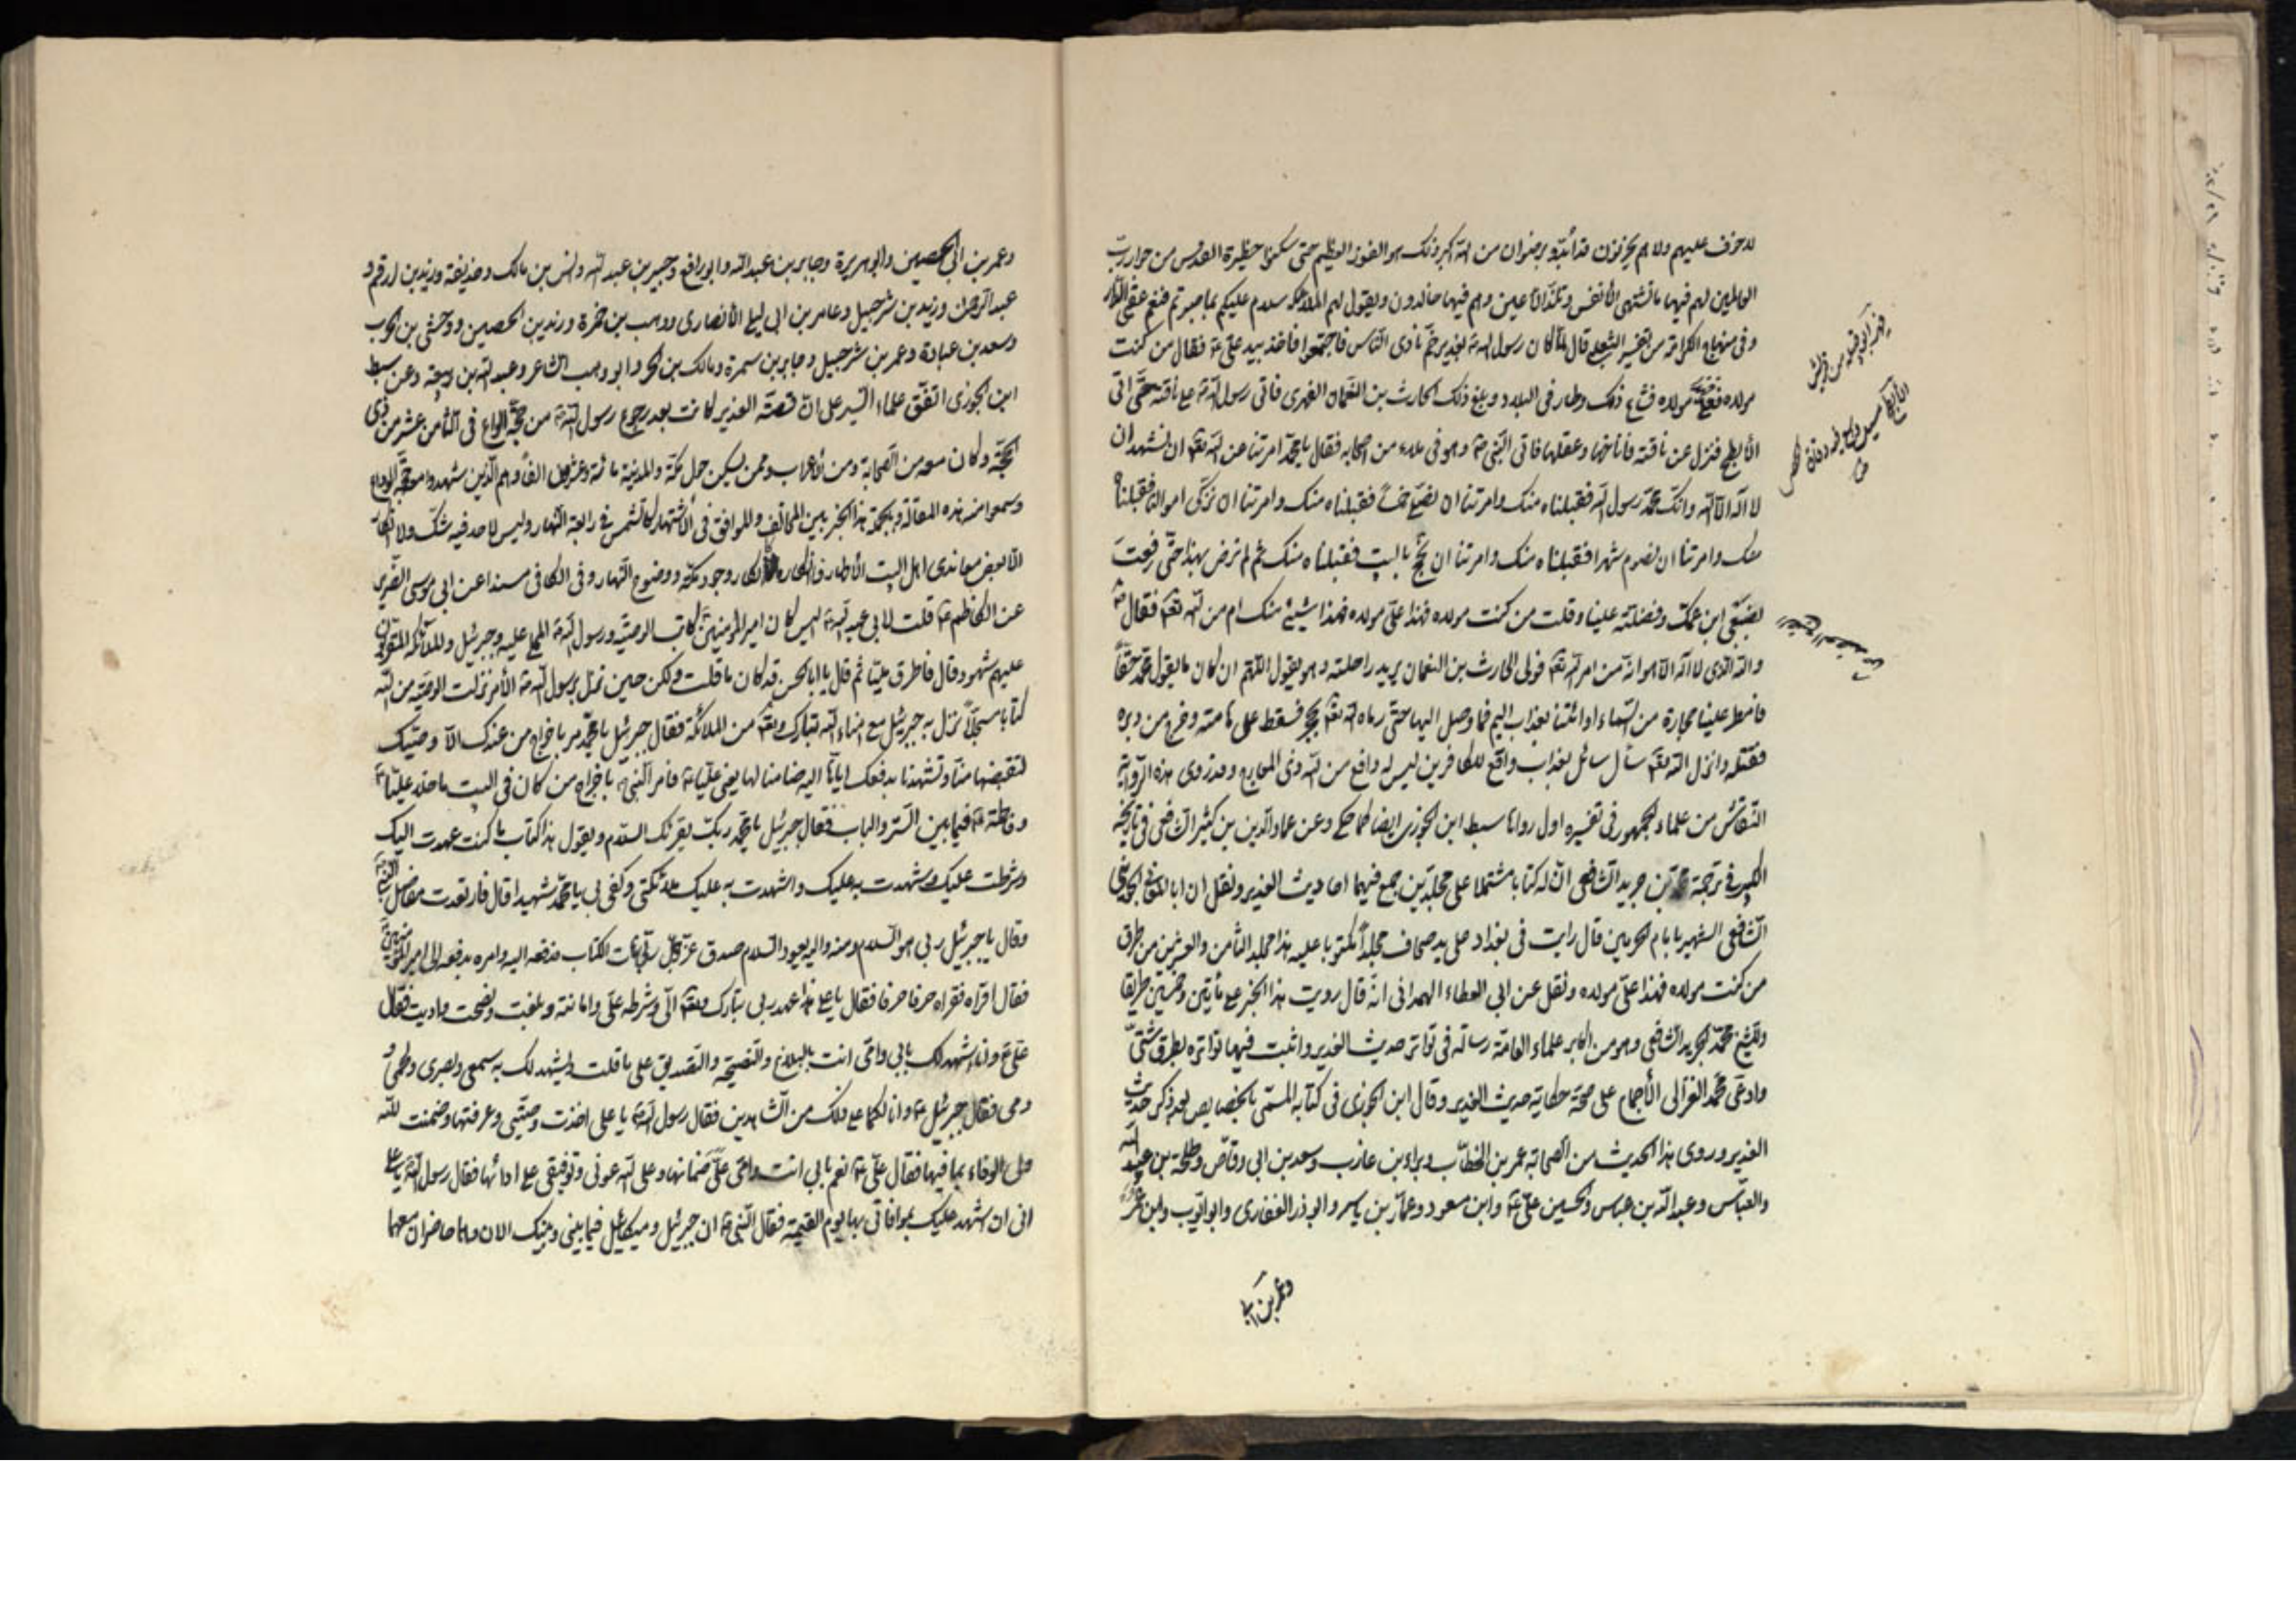 لا خوف عليهم ولا هم يحزنون برضوان من الله اكبر وذلك هو الفوز العظيم حتى سكنوا حظيرة القدس من جوار رب
العالمين لهم فيها ما تشتهى الأنفس وتلذ الأعين وهم فيها خالدون ويقول لهم الملائكة سلام عليكم بما صبرتم فنعم عقبى الدار
وفى منهاج الكرامة من تفسير الثعلبى قال لما كان رسول الله ص بغدير خم نادى الناس فاجتمعوا فاخذ بيد على ع فقال من كنت
مولاه فعلى مولاه فشاع ذلك وطار فى البلاد وبلغ ذلك الحارث بن النعمان الفهرى فاتى رسول الله ص على ناقته حتى اتى
الأبطح فنزل عن ناقته فاناخها وعقلها فاتى النبى ص وهو فى ملاء من اصحابه فقال يا محمد امرتنا عن الله تعالى ان نشهد ان
لا اله الا الله وانك محمد رسول الله فقبلناه منك وامرتنا ان نصلى خمساً فقبلناه منك وامرتنا ان نزكى اموالنا فقبلناه
منك وامرتنا ان نصوم شهرا فقبلناه منك وامرتنا ان نحج بالبيت فقبلناه منك ثم لم ترض بهذا حتى رفعت
بضبعى ابن عمك وفضلته علينا وقلت من كنت مولاه فهذا على مولاه فهذا شيئ منك ام من الله تعالى فقال ص
والله الذى لا اله الا هو انه من امر الله تعالى فولى الحارث بن النعمان يريد راحلته وهو يقول اللهم ان كان ما يقول محمد حقاً
فامطر علينا حجارة من السماء او ائتنا بعذاب اليم فما وصل اليها حتى رماه الله تعالى بحجر فسقط على هامته وخرج من دبره
فقتله وانزل الله تعالى سأل سائل بعذاب واقع للكافرين ليس له دافع من الله ذى المعارج وقد روى هذه الرواية
النقاش من علماء الجمهور فى تفسيره اول رواها سبط ابن الجوزى ايضا كما حكى وعن عماد الدين بن كثير الشافعى فى تاريخه
الكبير فى ترجمة محمد بن جرير الشافعى ان له كتابا مشتملا على مجلدين جمع فيهما احاديث الغدير ونقل ان ابا المعالى الجوينى
الشافعى الشهير بامام الحرمين قال رايت فى بغداد على يد صحاف مجلداً مكتوبا عليه هذا مجلد الثامن والعشرين من طرق
من كنت مولاه فهذا على مولاه ونقل عن ابى العطاء الهمدانى انه قال رويت هذا الخبر على مأتين وخمسين طريقا
وللشيخ محمد الجزرى الشافعى وهو من اكابر علماء العامة رسالة فى تواتر حديث الغدير واثبت فيها تواتره بطرق شتى
وادعى محمد الغزالى الأجماع على صحة خطابة حديث الغدير وقال ابن الجوزى فى كتابه المسمى بالخصايص بعد ذكر حديث
الغدير وروى هذا الحديث من الصحابة عمر بن الخطاب وبراء بن عازب وسعد بن ابى وقاص وطلحة بن عبيد الله
والعباس وعبد الله بن عباس والحسين بن على ع وابن مسعود وعمار بن ياسر وابو ذر الغفارى وابو ايوب وابن عمر
وعمر بن ابى
وعمر بن ابى الحصين وابو هريرة وجابر بن عبد الله وابو رافع وجبير بن عبد الله وانس بن مالك وحذيفة وزيد بن ارقم و
عبد الرحمن وزيد بن شرحبيل وعامر بن ابى ليلى الأنصارى ووهب بن حمزة وزيد بن الحصين ووحشى بن الحرب
وسعد بن عبادة وعمر بن شرحبيل وجابر بن سمرة ومالك بن الحر وابو وهب الشاعر وعبد الله بن ربيعة وعن سبط
ابن الجوزى اتفق علماء السير على ان قصة الغدير كانت بعد رجوع رسول الله ص من حجة الوداع فى الثامن عشر من ذى
الحجة وكان معه من الصحابة ومن الأعراب وممن يسكن حول مكة والمدينة مائة وعشرون الفاً وهم الذين شهدوا معه حجة الوداع
وسمعوا منه هذه المقالة وبالجملة هذا الخبر بين المخالف والموافق فى الأشتهار كالشمس فى رابعة النهار وليس لاحد فيه شك ولا انكار
الا لبعض معاندى اهل البيت الأطهار فانكاره كانكار وجود مكة ووضوح النهار وفى الكافى مسندا عن ابى موسى الضرير
عن الكاظم ع قلت لابى عبد الله ع اليس كان امير المؤمنين ع كاتب الوصية ورسول الله ص المملى عليه وجبرئيل والملائكة المقربون
عليهم شهود قال فاطرق مليّا ثم قال يا ابا الحسن قد كان ما قلت ولكن حين نزل برسول الله ص الأمر نزلت الوصية من الله
كتابا مسجلاً نزل به جبرئيل مع امناء الله تبارك وتعالى من الملائكة فقال جبرئيل يا محمد مر باخراج من عندك الا وصيك
لتقبضها منا وتشهدنا بدفعك اياها اليه ضامنا لها يعنى عليا ع فامر النبى ص باخراج من كان فى البيت ما خلا علياً ع
وفاطمة ع فيما بين الستر والباب فقال جبرئيل يا محمد ربك يقرئك السلام ويقول هذا كتاب ما كنت عهدت اليك
وشرطت عليك وشهدت به عليك واشهدت به عليك ملائكتى وكفى بى يا محمد شهيدا قال فارتعدت مفاصل النبى ص
وقال يا جبرئيل ربى هو السلام ومنه السلام واليه يعود السلام صدق عز وجل وبر هات الكتاب فدفعه اليه وامره بدفعه الى امير المؤمنين ع
فقال اقرأه فقراه حرفا حرفا فقال يا على هذا عهد ربى تبارك وتعالى الى وشرطه على وامانته وبلغت ونصحت واديت فقال
على ع وانا اشهد لك بابى وامى انت بالبلاغ والنصيحة والتصديق على ما قلت ويشهد لك به سمعى وبصرى ولحمى و
دمى فقال جبرئيل ع وانا لكما على ذلك من الشاهدين فقال رسول الله ص يا على اخذت وصيتى وعرفتها وضمنت لله
ولى الوفاء بما فيها فقال على ع نعم بابى انت وامى على ضمانها وعلى الله عونى وتوفيقى على ادائها فقال رسول الله ص يا على
انى ان اشهد عليك بموافاتى بها يوم القيمة فقال النبى ص ان جبرئيل وميكائيل فيما بينى وبينك الان وهما حاضران معهما